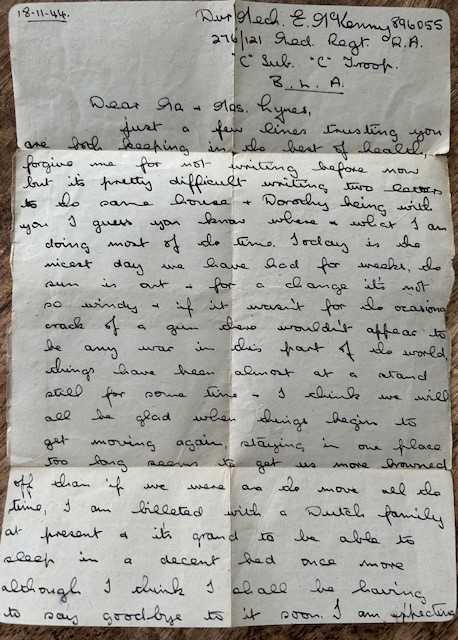 18-11-44.
Dvr Mech. E. McKenny 896055
276/121 Med. Regt. R.A.
"C" Sub. "C" Troop.
B.L.A.
Dear Ma + Mas. Lynes,
just a few lines trusting you
are both keeping in the best of health,
forgive me for not writing before now
but its pretty difficult writing two letters
to the same house + Dorothy being with
you I guess you know where + what I am
doing most of the time. Today is the
nicest day we have had for weeks, the
sun is out + for a change it's not
so windy + if it wasn't for the ocasiona
crack of a gun there wouldn't appear to
be any war in this part of the world,
things have been almost at a stand
still for some time + I think we will
all be glad when things begin to
get moving again, staying in one place
too long seems to get us more browned
off than if we were on the move all the
time, I am billeted with a Dutch family
at present + it's grand to be able to
sleep in a decent bed once more
although I think I shall be having
to say goodbye to it soon. I am expecting